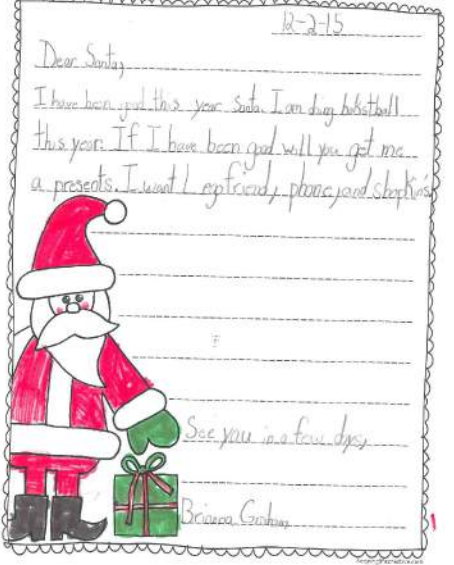 12-2-15
Dear Santa,
I have been god this year Santa. I am doing bakstball
this year. If I have been god will you get me
a presents. I want Legofriend, phone, and shopkin's
See you in a few days,
Brianna Graham